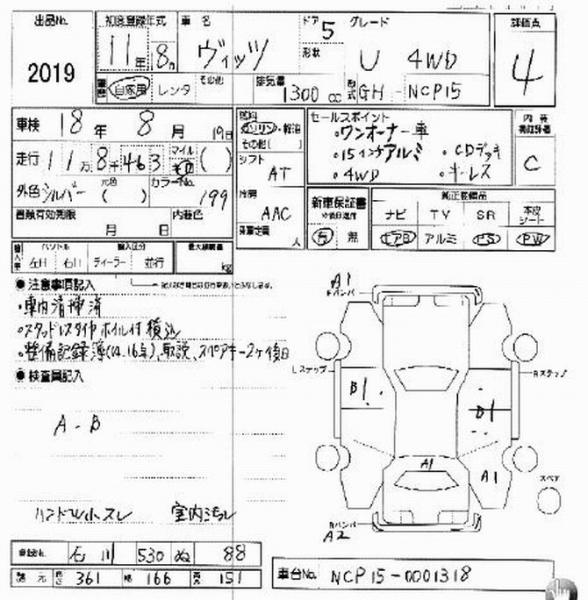 出品No. 2019
初度登録年式 11年 8月
車名 ヴィッツ
ドア 5
形状
グレード U 4WD
評価点 4
車歴 自家用 レンタ その他
排気量 1300 cc
型式 GH-NCP15
車検 18年 8月 19日
走行 11万8千463 マイル キロ ( )
外色 シルバー 元色 ( ) カラーNo. 199
車検有効期限 月 日 内装色
燃料 ガソリン・軽油 その他( )
シフト AT
冷房 AAC
乗車定員 人
セールスポイント
・ワンオーナー車
・15インチアルミ
・4WD
・CDデッキ
・キーレス
内装 補助評価 C
新車保証書 有 無
純正装備品
ナビ TV SR 本皮シート
エアB アルミ PS PW
輸入車 ハンドル 左H 右H 輸入区分 ディーラー 並行
最大積載量 kg
●注意事項記入
・車内清掃済
・スタッドレスタイヤホイル付積込
・整備記録簿(14.16年)、取説、スペアキー2ヶ後日
●検査員記入
A-B
ハンドルスレ 室内ヨゴレ
A1
Fバンパー
Lステップ
Rステップ
B1
B1
A1
A1
スペア
Rバンパー
A2
登録No. 石川 530 ぬ 88
諸元 長さ 361 幅 166 高さ 151
車台No. NCP15-0001318